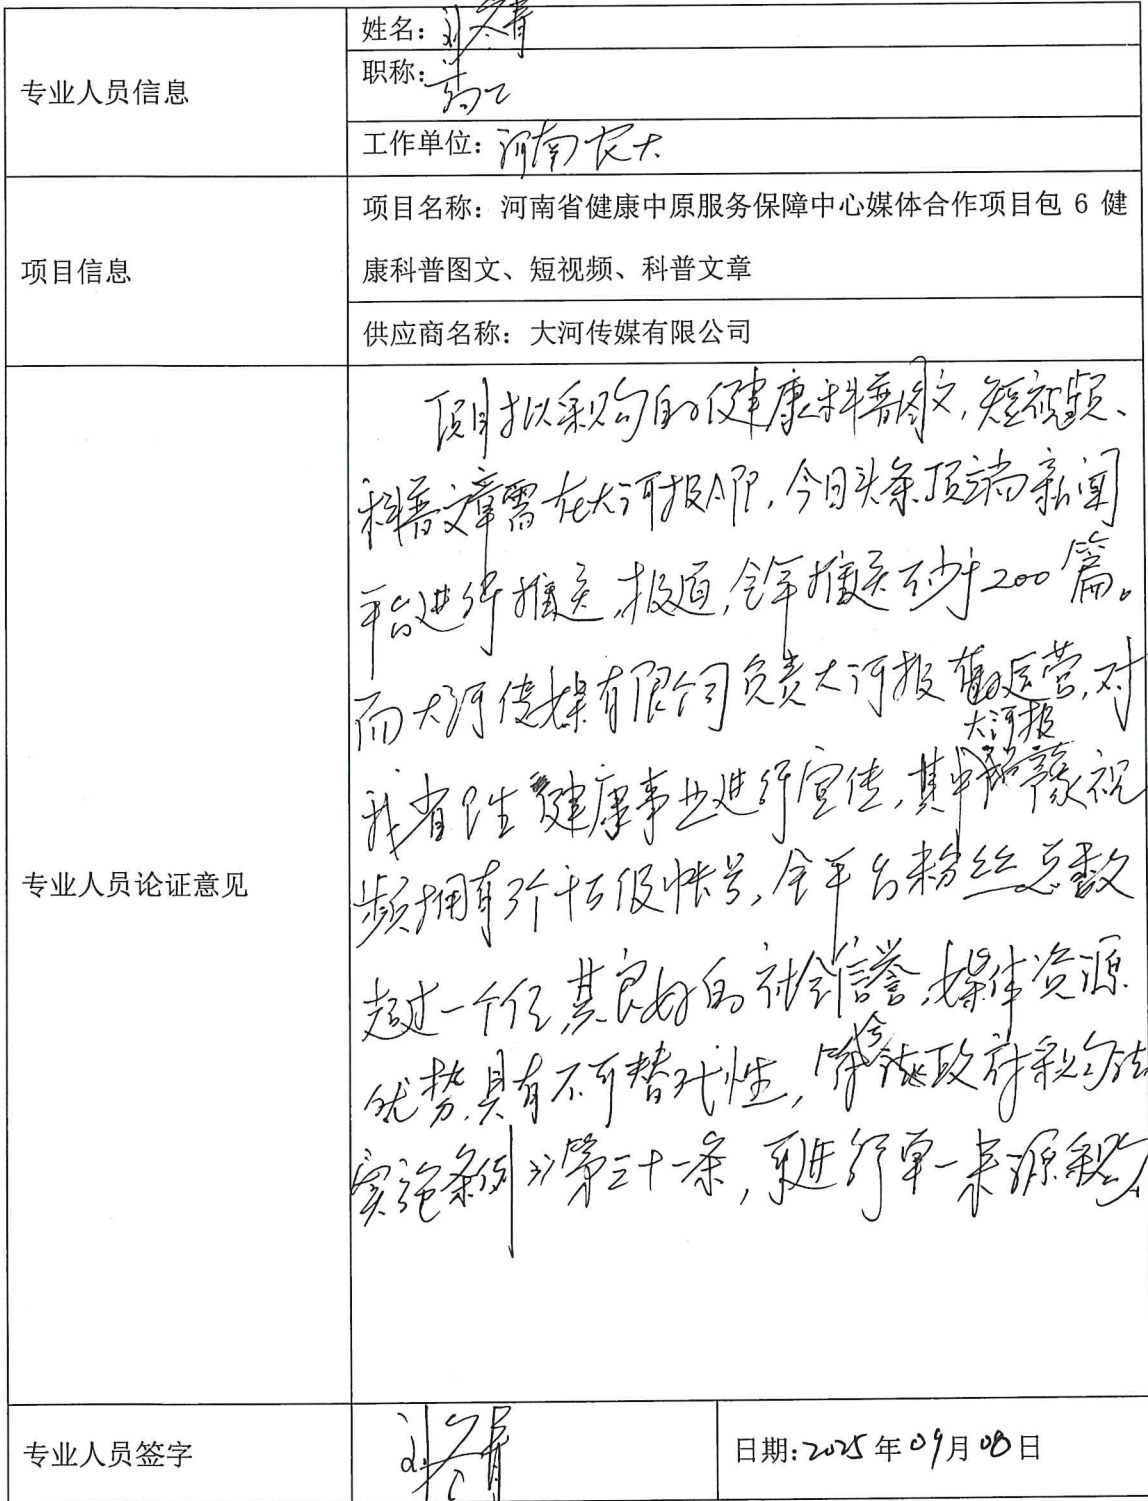 专业人员信息
姓名：刘冬青
职称：高工
工作单位：河南农大
项目信息
项目名称：河南省健康中原服务保障中心媒体合作项目包 6 健
康科普图文、短视频、科普文章
供应商名称：大河传媒有限公司
专业人员论证意见
项目拟采购的健康科普图文，短视频、
科普文章需在大河报APP，今日头条顶端新闻
平台进行推送，报道，全年推送不少于200篇。
而大河传媒有限公司负责大河报的运营，对
我省卫生健康事业进行宣传，其中大河报豫视
频拥有3个千万级帐号，全平台粉丝总数
超过一个亿，其良好的社会信誉，媒体资源
优势，具有不可替代性，符合政府采购法
实施条例》第三十一条，可进行单一来源采购.
专业人员签字
刘冬青
日期：2025年09月08日